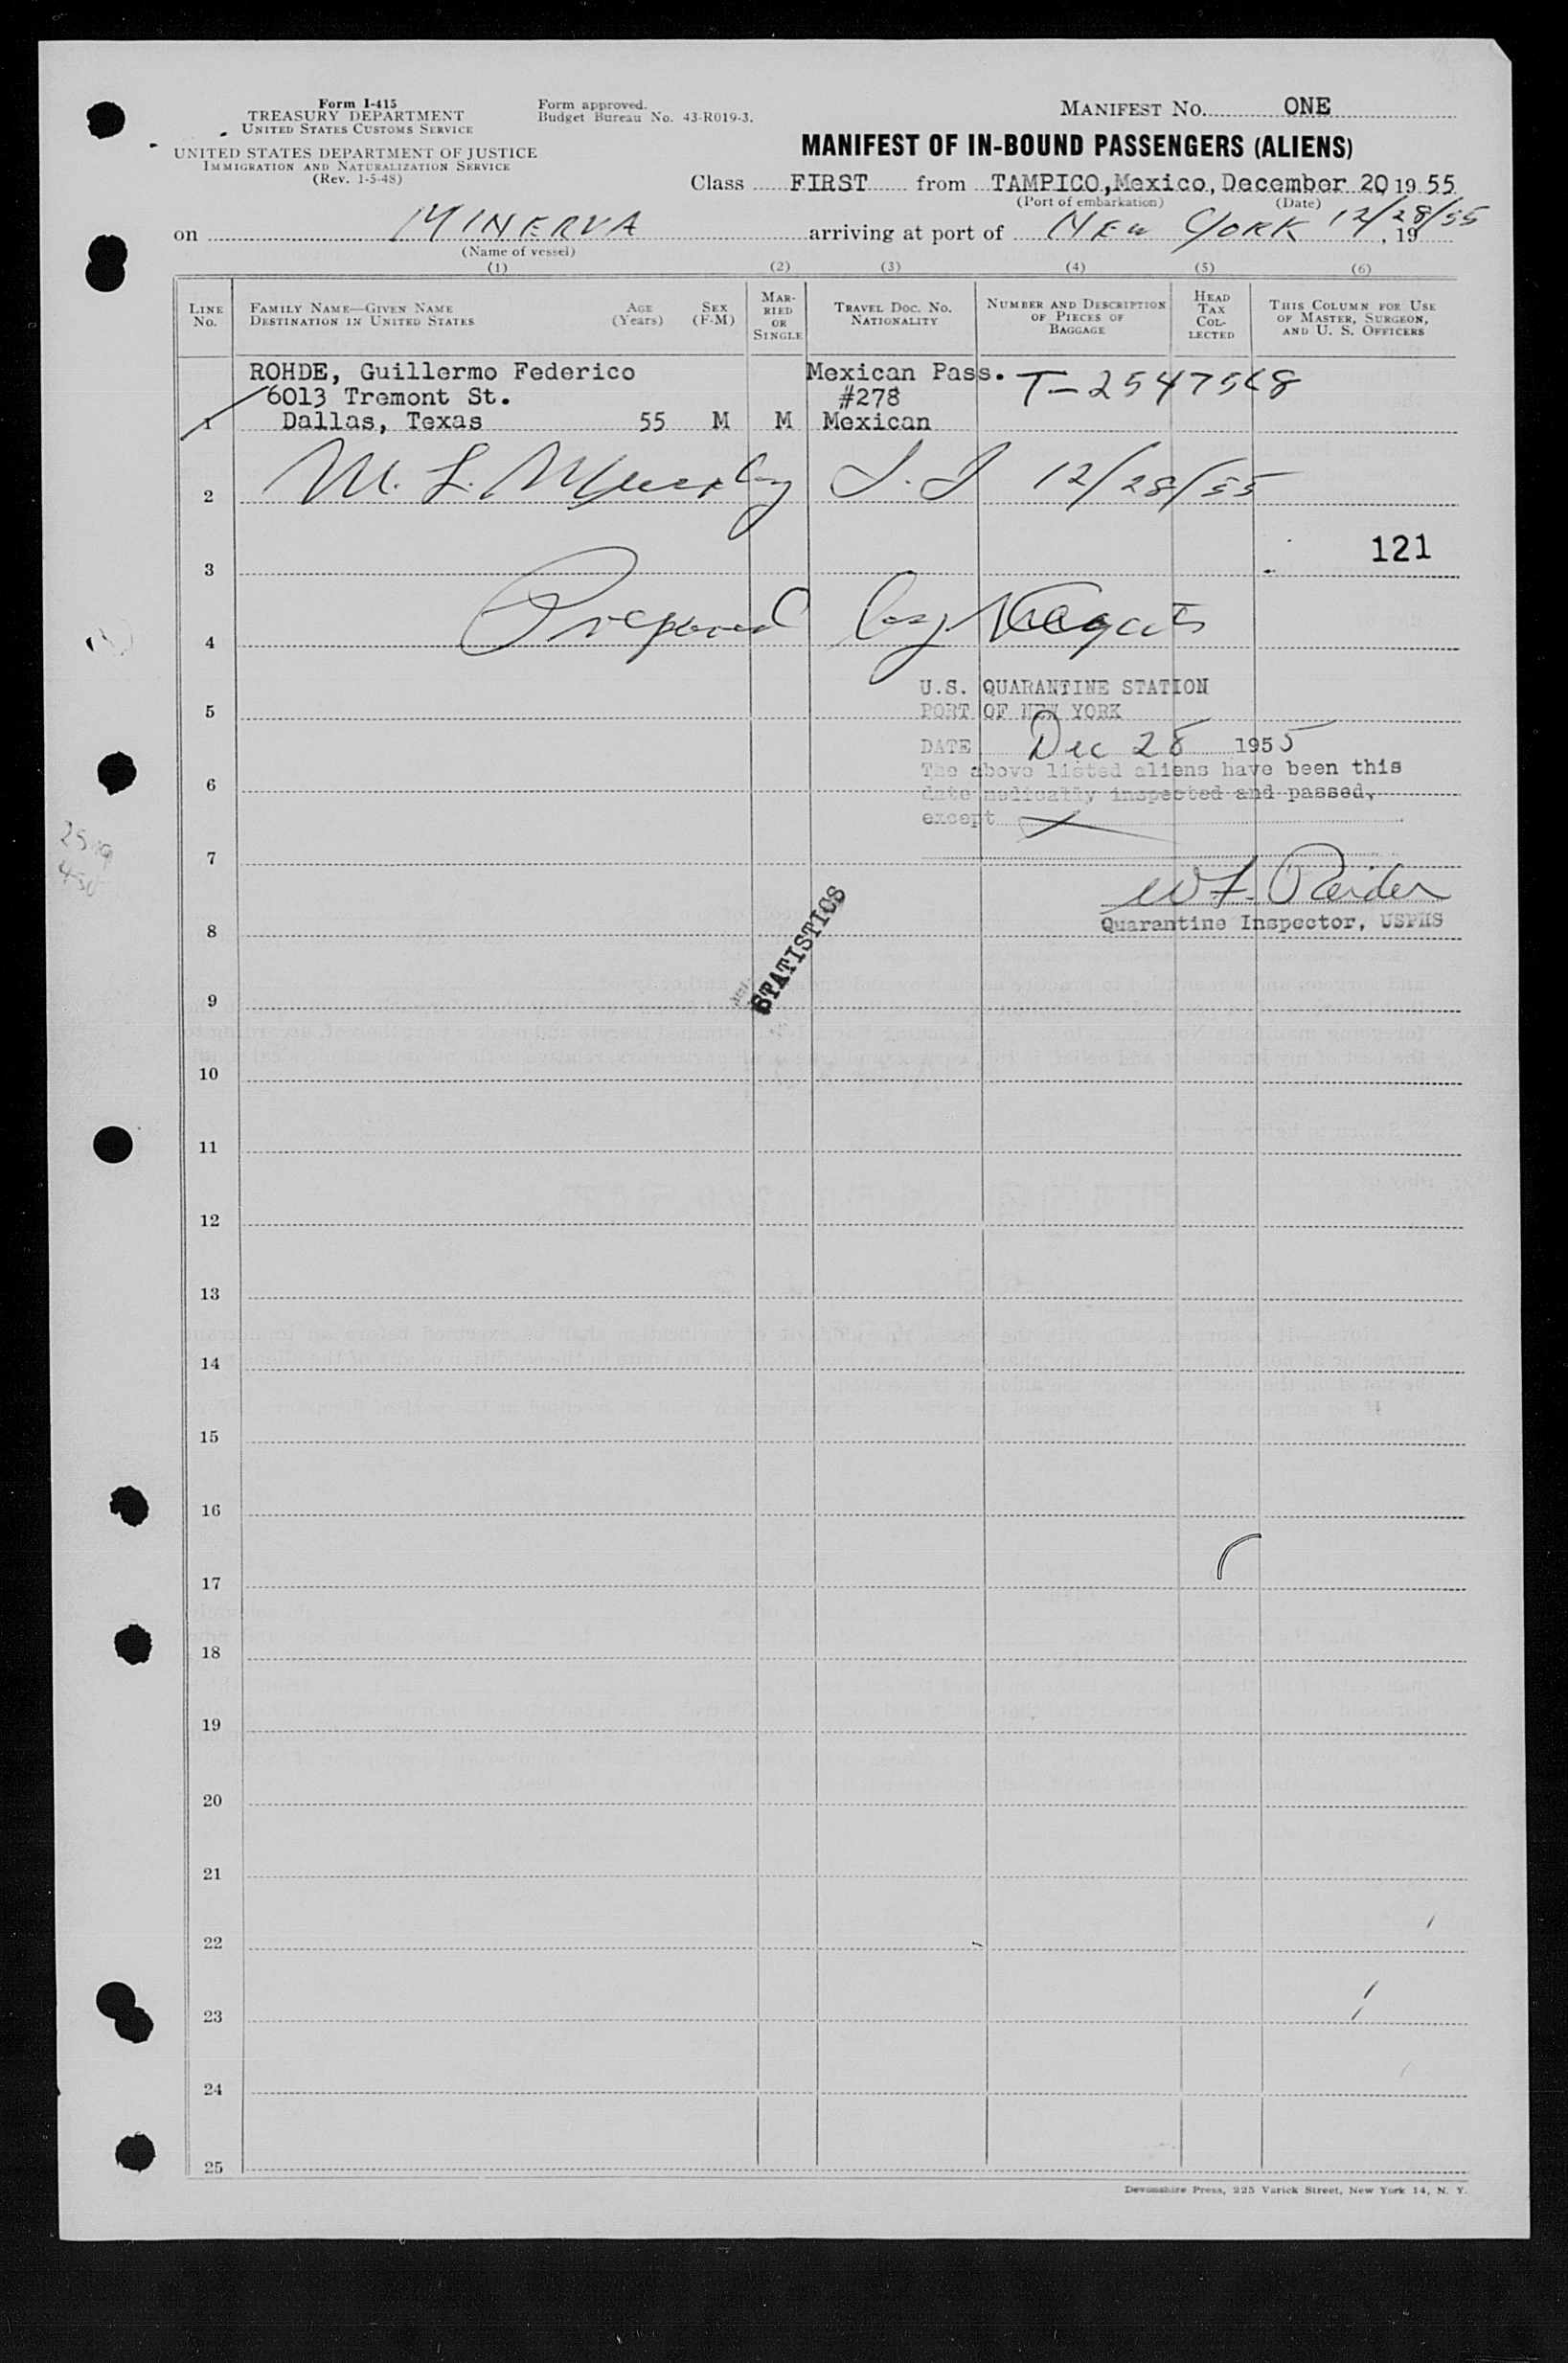 Form I-415
TREASURY DEPARTMENT
UNITED STATES CUSTOMS SERVICE
UNITED STATES DEPARTMENT OF JUSTICE
IMMIGRATION AND NATURALIZATION SERVICE
(Rev. 1-5-48)
Form approved.
Budget Bureau No. 43-R019-3.
MANIFEST No. ONE
MANIFEST OF IN-BOUND PASSENGERS (ALIENS)
Class FIRST from TAMPICO, Mexico, December 20, 19 55
(Port of embarkation) (Date)
on MINERVA arriving at port of NEW YORK 12/28/55, 19
(Name of vessel)
(1) (2) (3) (4) (5) (6)
LINE No.
FAMILY NAME—GIVEN NAME
DESTINATION IN UNITED STATES
AGE (Years)
SEX (F-M)
MARRIED OR SINGLE
TRAVEL DOC. No.
NATIONALITY
NUMBER AND DESCRIPTION OF PIECES OF BAGGAGE
HEAD TAX COLLECTED
THIS COLUMN FOR USE OF MASTER, SURGEON, AND U. S. OFFICERS
ROHDE, Guillermo Federico Mexican Pass.
6013 Tremont St. #278
1 Dallas, Texas 55 M M Mexican
2 M. L. Murphy 12/28/55
121
3
4 Prepared by
U.S. QUARANTINE STATION
5 PORT OF NEW YORK
DATE Dec 28 1955
The above listed aliens have been this
6 date medically inspected and passed,
except
7
Quarantine Inspector, USPHS
8
STATISTICS
9
10
11
12
13
14
15
16
17
18
19
20
21
22
23
24
25
Devonshire Press, 225 Varick Street, New York 14, N. Y.